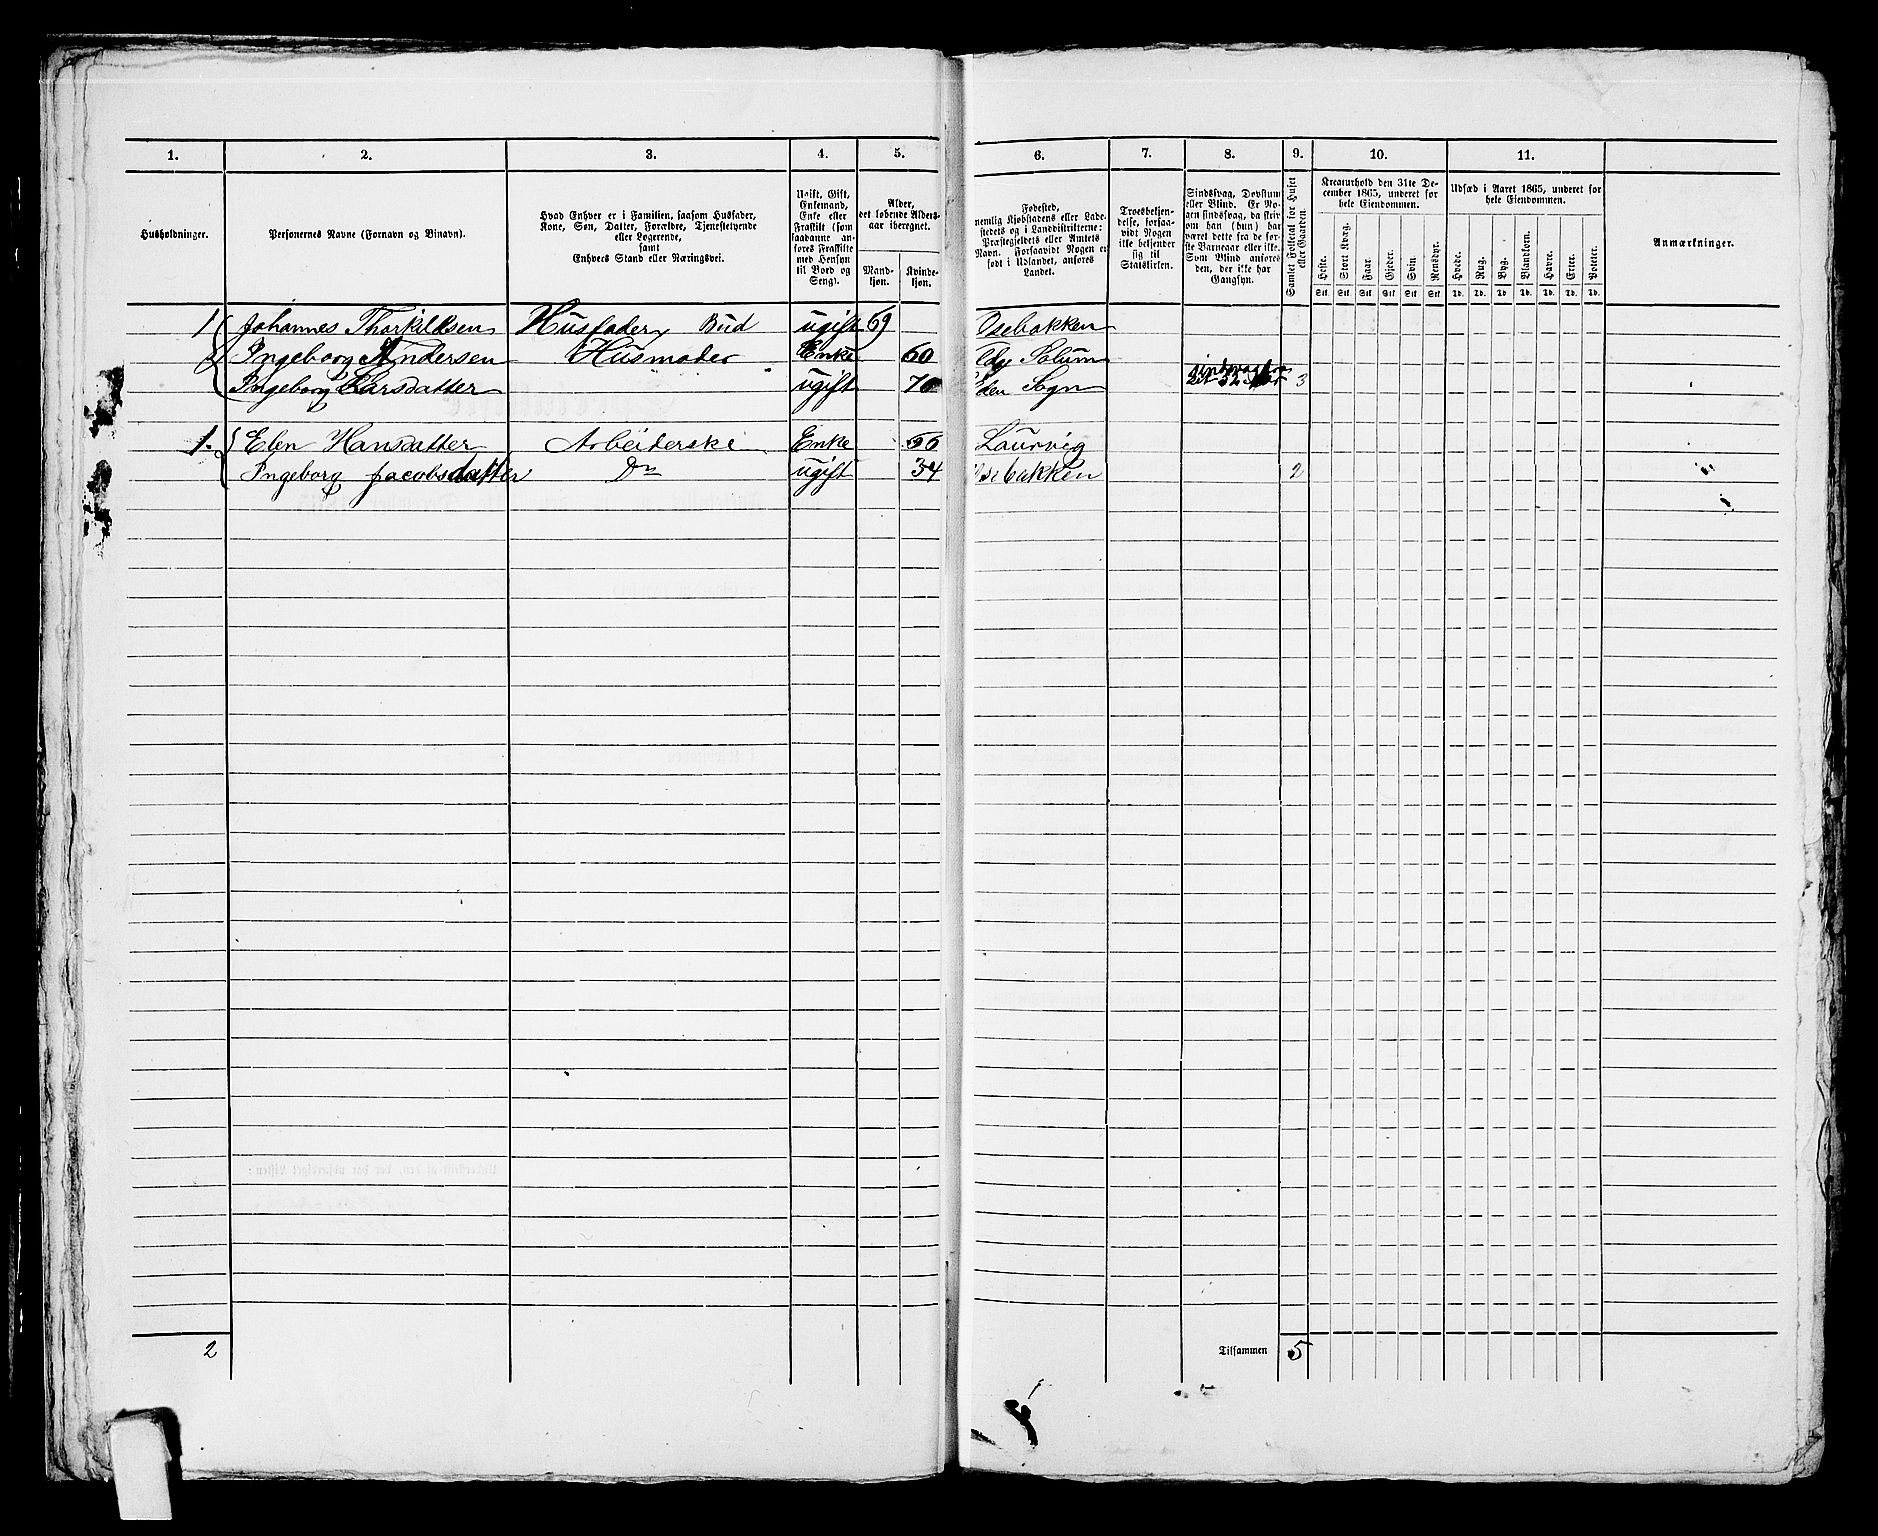 1. 2. 3. 4. 5. 6. 7. 8. 9. 10. 11.
Husholdninger.
Personernes Navne (Fornavn og Binavn).
Hvad Enhver er i Familien, saasom Husfader,
Kone, Søn, Datter, Forældre, Tjenestetyende
eller Logerende,
samt
Enhvers Stand eller Næringsvei.
Ugift, Gift,
Enkemand,
Enke eller
Fraskilt (som
saadanne an-
føres Fraskilte
med Hensyn
til Bord og
Seng).
Alder,
det løbende Alders-
aar iberegnet.
Mand-
kjøn.
Kvinde-
kjøn.
Fødested,
nemlig Kjøbstadens eller Lade-
stedets og i Landdistrikterne:
Præstegjeldets eller Amtets
Navn. Forsaavidt Nogen er
født i Udlandet, anføres
Landet.
Troesbekjen-
delse, forsaa-
vidt Nogen
ikke bekjender
sig til
Statskirken.
Sindssvag, Døvstum
eller Blind. Er No-
gen sindssvag, da skriv
om han (hun) har
været dette fra de før-
ste Barneaar eller ikke.
Som Blind anføres
den, der ikke har
Gangsyn.
Samlet Folketal for Huset
eller Gaarden.
Kreaturhold den 31te De-
cember 1865, underet for
hele Eiendommen.
Heste. Stort Kvæg. Faar. Gjeder. Svin. Rensdyr.
Stk. Stk. Stk. Stk. Stk. Stk.
Udsæd i Aaret 1865, underet for
hele Eiendommen.
Hvede. Rug. Byg. Blandkorn. Havre. Erter. Poteter.
Td. Td. Td. Td. Td. Td. Td.
Anmærkninger.
1 Johannes Thorkildsen Husfader Bud ugift 69 Osebakken
Ingeborg Andersen Husmoder Enke 60 Solum
Ingeborg Larsdatter ugift 70 Sogn 3
1. Elen Hansdatter Arbeiderske Enke 66 Laurvig
Ingeborg Jacobsdatter Do ugift 34 Osebakken 2
2 Tilsammen 5